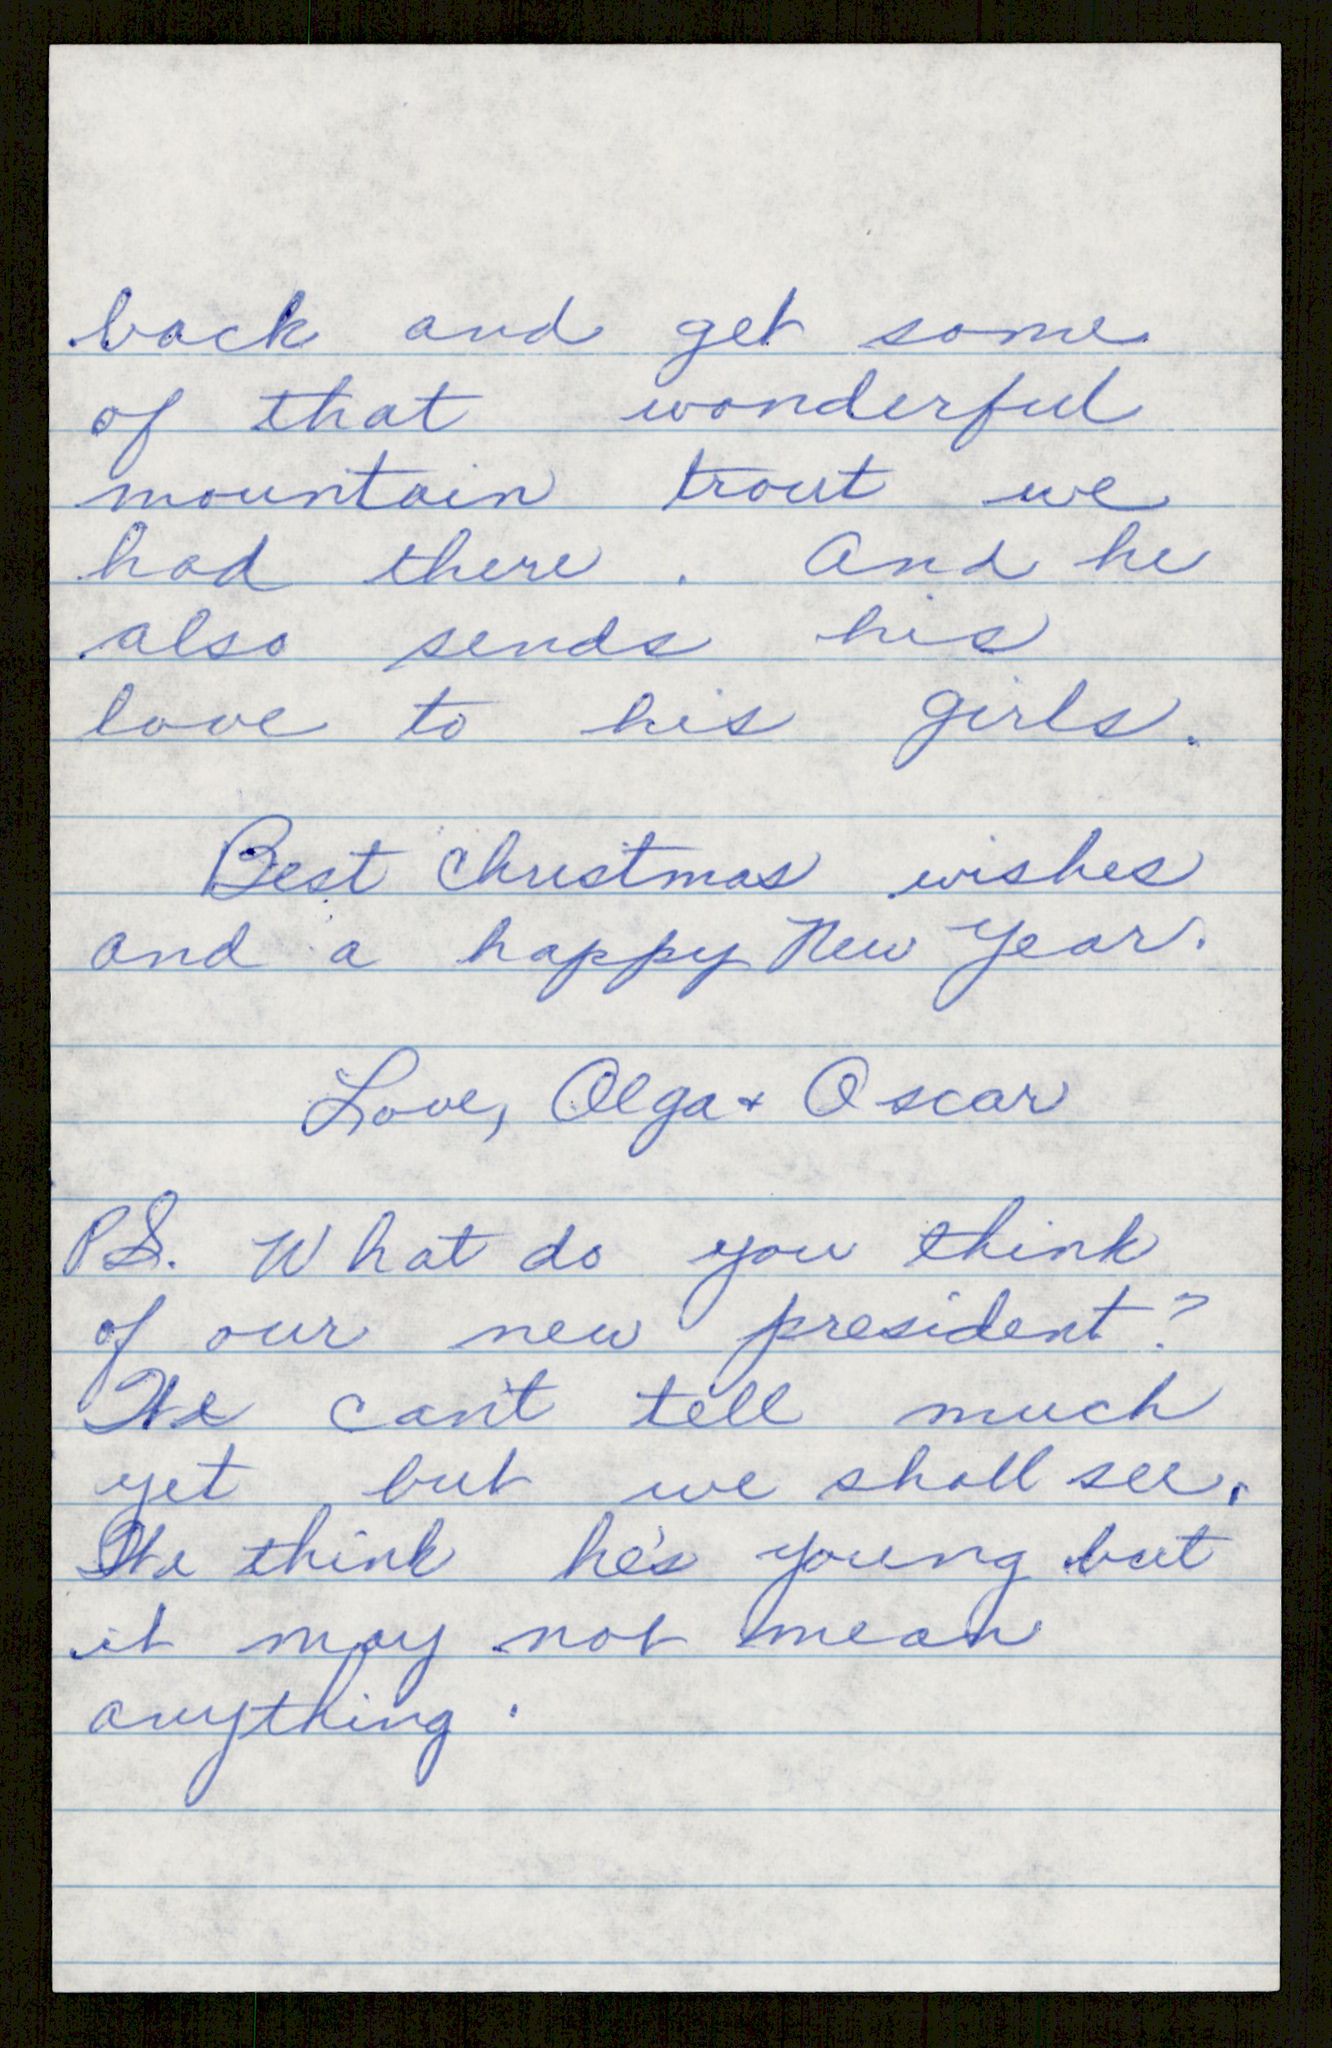 back and get some
of that wonderful
mountain trout we
had there. And he
also sends his
love to his girls.
Best Christmas wishes
and a happy New Year.
Love, Olga + Oscar
PS. What do you think
of our new president?
We can't tell much
yet but we shall see.
We think he's young but
it may not mean
anything.